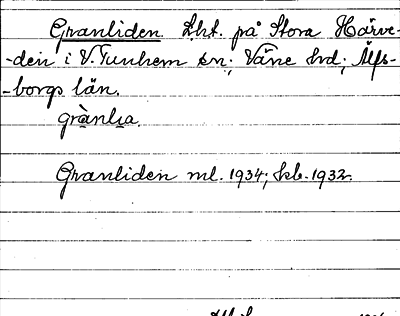 Granliden. Lht. på Stora Härve-
-den i V. Tunhem sn; Väne hd; Älfs-
-borgs län.
grànlia.
Granliden ml. 1934; skb. 1932.